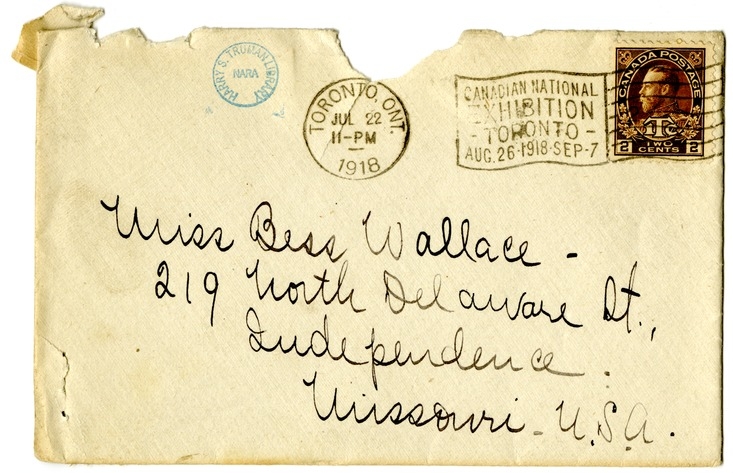 HARRY S. TRUMAN LIBRARY
NARA
TORONTO, ONT.
JUL 22
11-PM
1918
CANADIAN NATIONAL
EXHIBITION
- TORONTO -
AUG. 26·1918·SEP-7
CANADA POSTAGE
1Tc
2 TWO CENTS 2
Miss Bess Wallace -
219 North Delaware St.,
Independence.
Missouri - U.S.A.